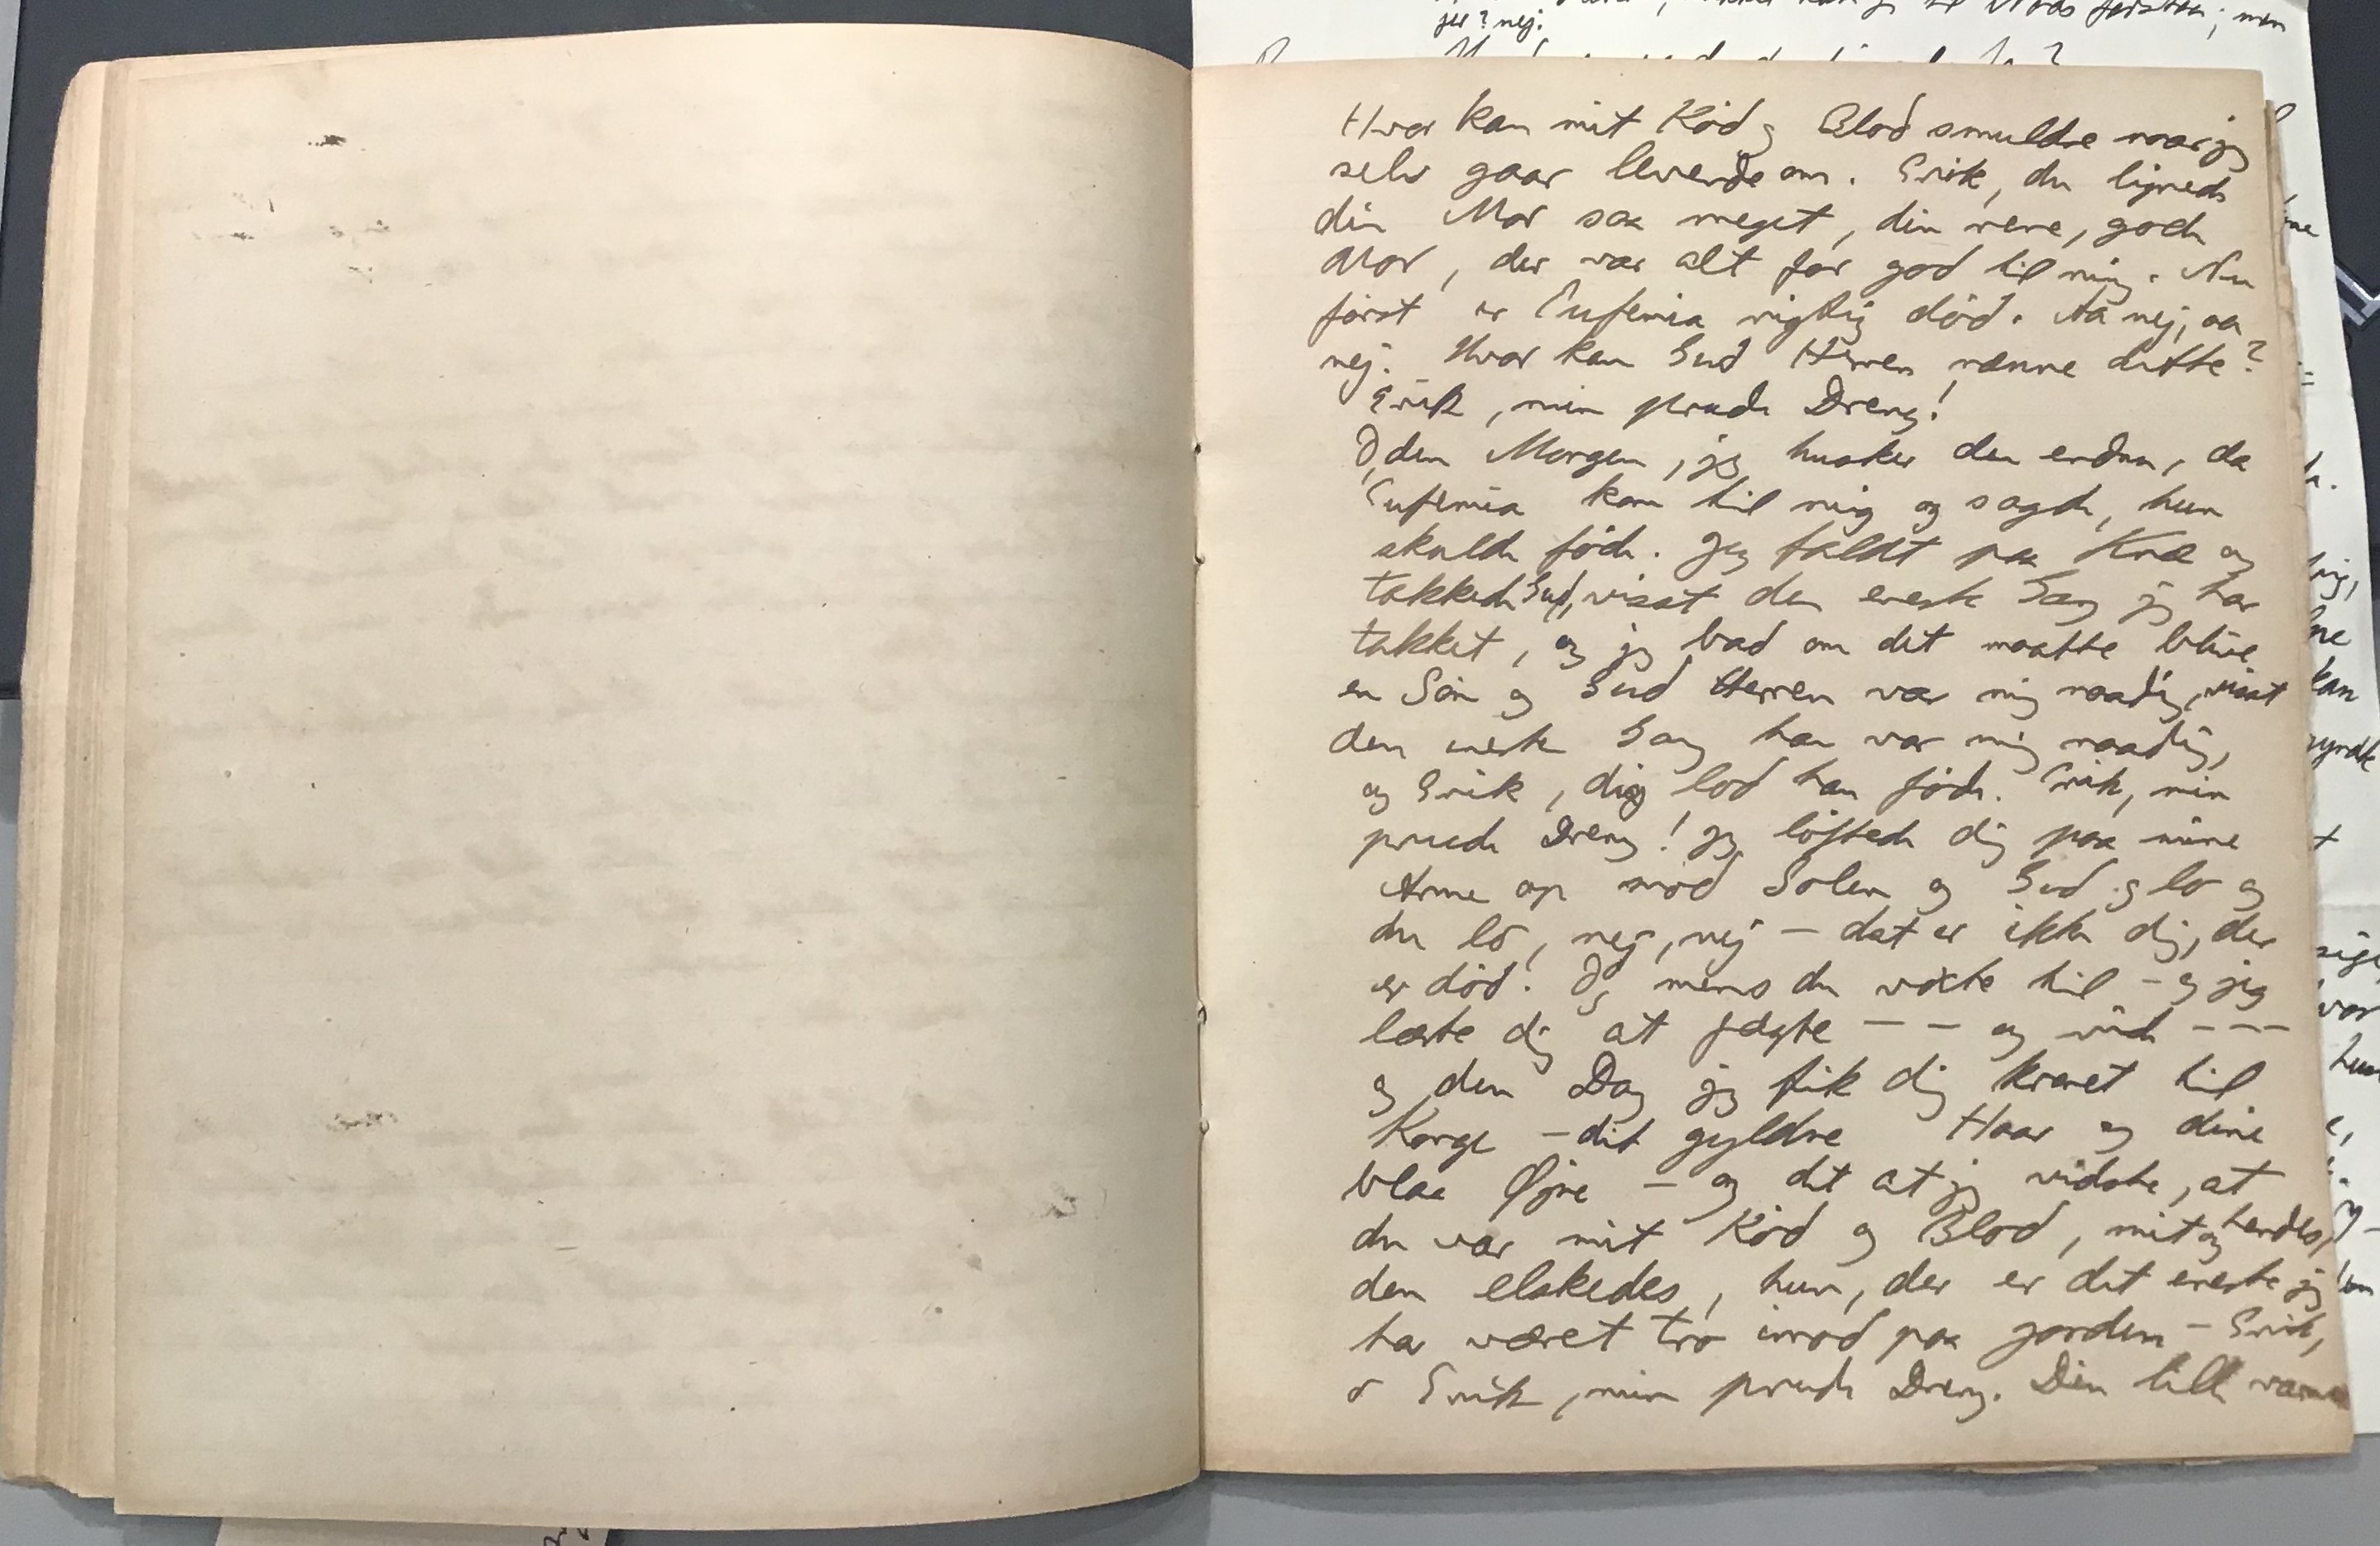 jeg? nej.
Hvor kan mit Kød og Blod smuldre naar jeg
selv gaar levende om. Erik, du ligned
din Mor saa meget, din rene, gode
Mor, der var alt for god til mig. Nu
först er Eufemia rigtig död. Aa nej, aa
nej. Hvor kan Gud Herren nænne dette?
Erik, min prude Dreng!
O, den Morgen, jeg husker den endnu, da
Eufemia kom til mig og sagde, hun
skulde föde. Jeg faldt paa Knæ og
takkede Gud, visst den eneste Gang jeg har
takket, og jeg bad om det maatte blive
en Sön og Gud Herren var mig naadig, visst
den eneste Gang han var mig naadig,
og Erik, dig lod han föde. Erik, min
prude Dreng! Jeg löftede dig paa mine
Arme op mod Solen og Gud og lo og
du lo, nej, nej — det er ikke dig, der
er död! Og mens du voxte til — og jeg
lærte dig at fægte — — og ride — — —
og den Dag jeg fik dig kronet til
Konge — dit gyldne Haar og dine
blaa Øjne — og det at jeg vidste, at
du var mit Köd og Blod, mit og hendes,
den elskedes, hun, der er det eneste jeg
har været tro imod paa Jorden — Erik,
o Erik, min prude Dreng. Din lille varme